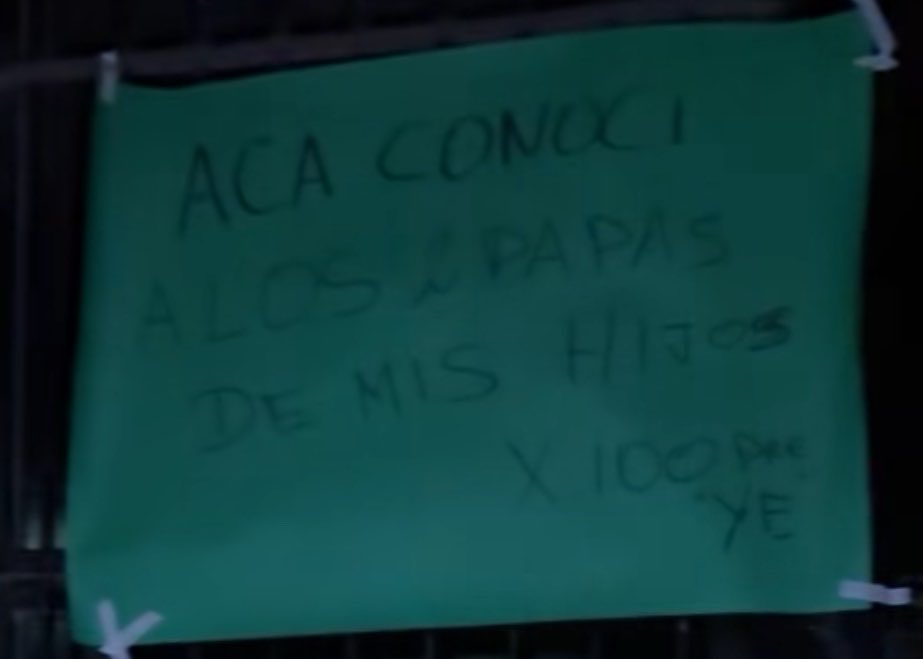 ACA CONOCI
A LOS PAPAS
DE MIS HIJOS
X 100 pre
YE